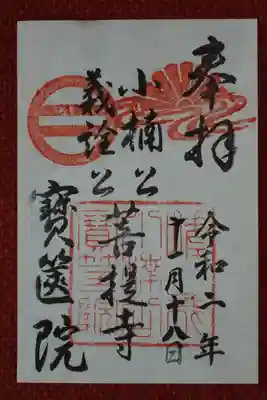 奉拝
令和二年
十一月十八日
小楠公
義詮公
菩提寺
寶篋院